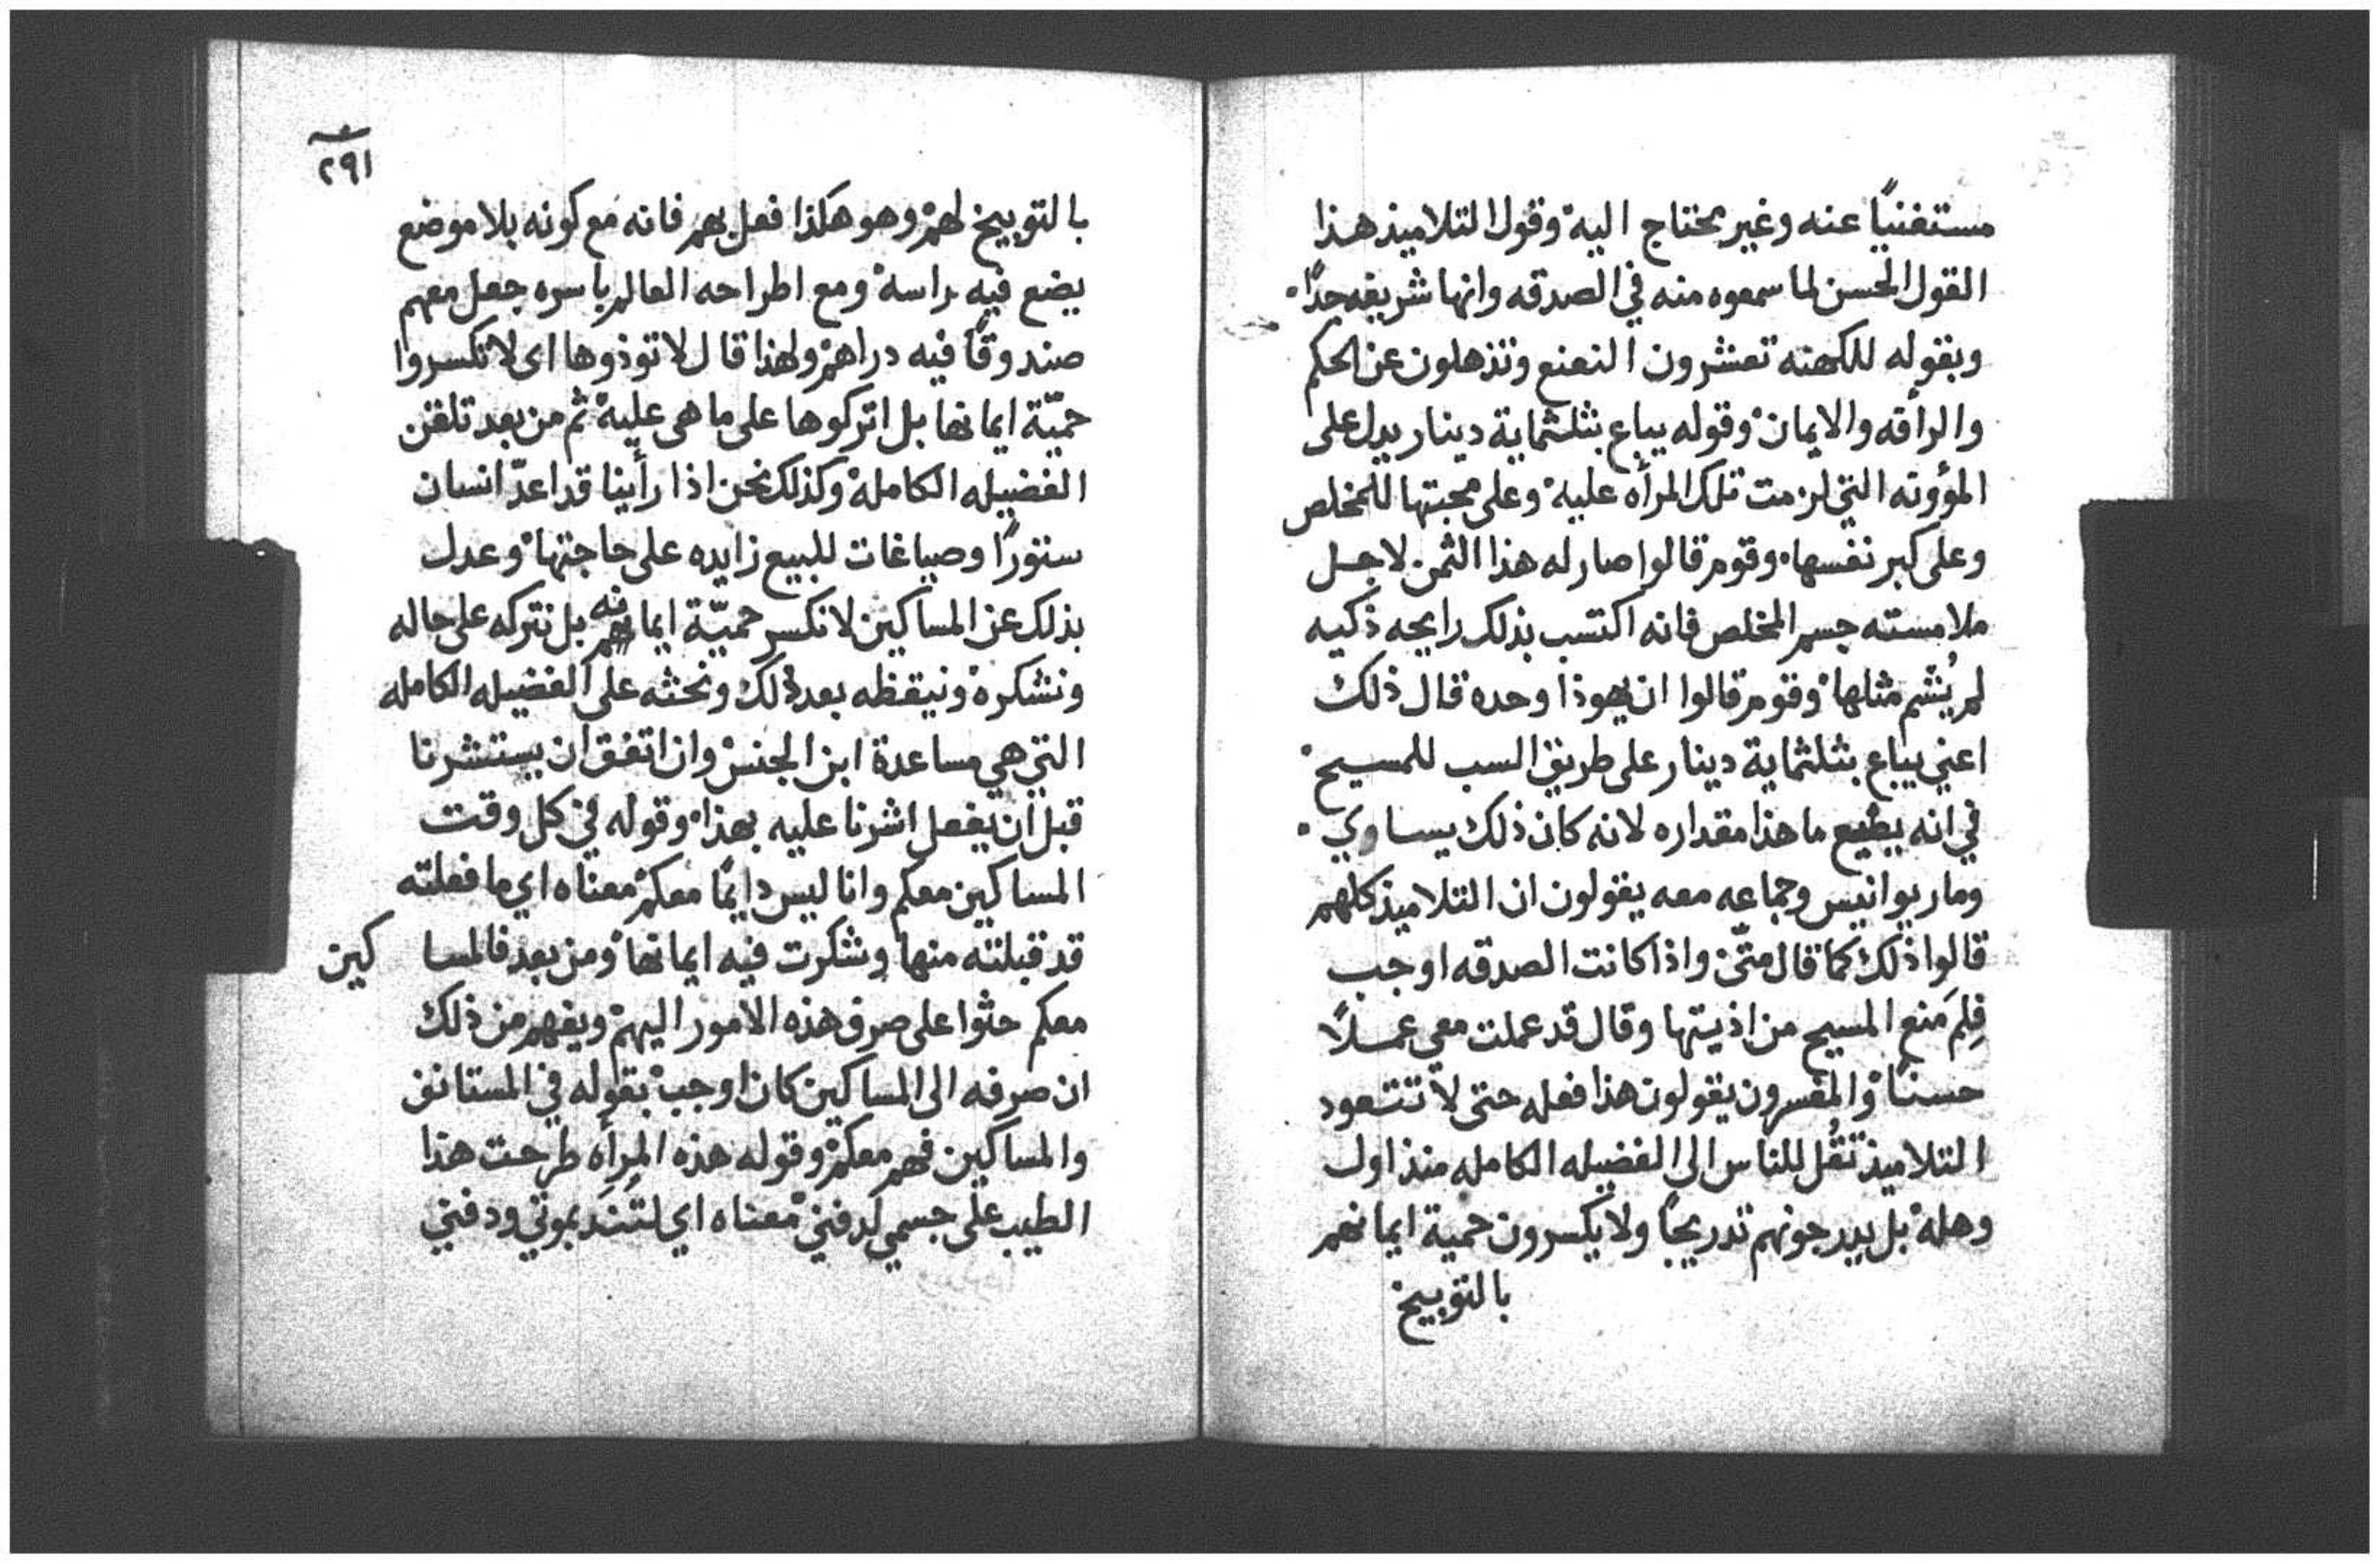 مستغنيًا عنه وغير محتاج اليه وقول التلاميذ هذا
القول الحسن لما سمعوه منه في الصدقه وانها شريفه جدًا
وبقوله للكهنه تعشرون النعنع وتذهلون عن الحكم
والرأفه والايمان وقوله يباع بثلثماية دينار يدل على
المؤونه التي لزمت تلك المرأه عليه وعلى محبتها للمخلص
وعلى كبر نفسها وقوم قالوا صار له هذا الثمن لاجل
ملامسته جسم المخلص فانه اكتسب بذلك رايحه ذكيه
لم يُشم مثلها وقوم قالوا ان يهوذا وحده قال ذلك
اعني يباع بثلثماية دينار على طريق السب للمسيح
في انه يضيع ما هذا مقداره لانه كان ذلك يساوي
ومار يوانيس وجماعه معه يقولون ان التلاميذ كلهم
قالوا ذلك كما قال متّى واذا كانت الصدقه اوجب
فلِمَ مَنع المسيح من اذيتها وقال قد عملت معي عملًا
حسنًا والمفسرون يقولون هذا فعله حتى لا تتعود
التلاميذ تقُل للناس الى الفضيله الكامله منذ اول
وهله بل يدرجونهم تدريجًا ولا يكسرون حمية ايمانهم
بالتوبيخ
٢٩١
بالتوبيخ لهم وهو هكذا فعل بهم فانه مع كونه بلا موضع
يضع فيه راسه ومع اطراحه العالم باسره جعل معهم
صندوقًا فيه دراهم ولهذا قال لا توذوها اى لا تكسروا
حميّة ايمانها بل اتركوها على ما هى عليه ثم من بعد تلقن
الفضيله الكامله وكذلك نحن اذا رأينا قد اعدّ انسان
ستورًا وصياغات للبيع زايده على حاجتها وعدل
بذلك عن المساكين لا نكسر حميّة ايمانه بل نتركه على حاله
ونشكره ونيقظه بعد ذلك ونحثه على الفضيله الكامله
التي هي مساعدة ابن الجنس وان اتفق ان يستشرنا
قبل ان يفعل اشرنا عليه بهذا وقوله في كل وقت
المساكين معكم وانا ليس دايمًا معكم معناه اي ما فعلته
قد قبلته منها وشكرت فيه ايمانها ومن بعد فالمساكين
معكم حثوا على صرف هذه الامور اليهم ويفهم من ذلك
ان صرفه الى المساكين كان اوجب بقوله في المستانف
والمساكين فهم معكم وقوله هذه المرأه طرحت هذا
الطيب على جسمي لدفني معناه اي لتُنذر بموتي ودفني